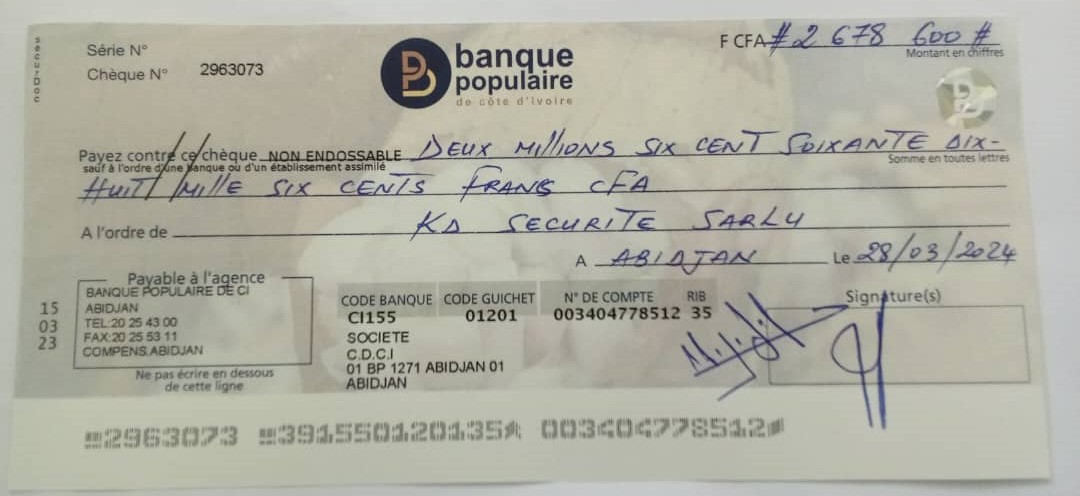 securDoc
Série N°
Chèque N° 2963073
banque
populaire
de côte d'ivoire
F CFA # 2 678 600 #
Montant en chiffres
Payez contre ce chèque NON ENDOSSABLE DEUX MILLIONS SIX CENT SOIXANTE DIX-
sauf à l'ordre d'une banque ou d'un établissement assimilé
Somme en toutes lettres
HUIT MILLE SIX CENTS FRANCS CFA
A l'ordre de KD SECURITE SARLU
A ABIDJAN Le 28/03/2024
Payable à l'agence
BANQUE POPULAIRE DE CI
ABIDJAN
TEL:20 25 43 00
FAX:20 25 53 11
COMPENS.ABIDJAN
15
03
23
Ne pas écrire en dessous
de cette ligne
CODE BANQUE CODE GUICHET N° DE COMPTE RIB
CI155 01201 003404778512 35
SOCIETE
C.D.C.I
01 BP 1271 ABIDJAN 01
ABIDJAN
Signature(s)
2963073 391550120135 003404778512